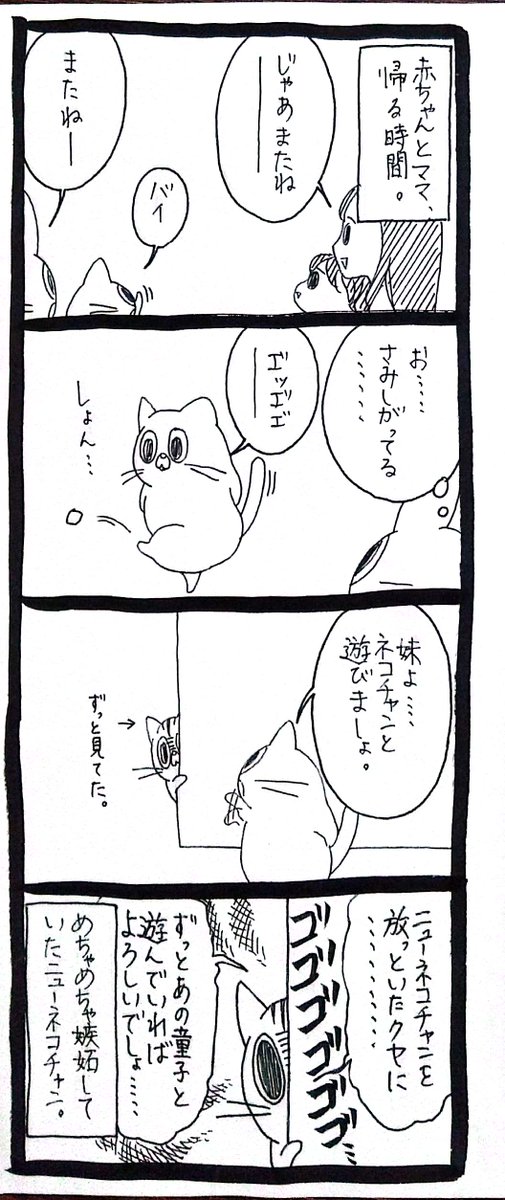 赤ちゃんとママ、
帰る時間。
じゃあまたね――
バイ
またねー
お……
さみしがってる
………
しょん…
妹よ……
ネコチャンと
遊びましょ。
ずっと見てた。
ニューネコチャンを
放っといたクセに
………
ゴゴゴゴゴゴ…
ずっとあの童子と
遊んでいれば
よろしいでしょ……
めちゃめちゃ嫉妬して
いたニューネコチャン。